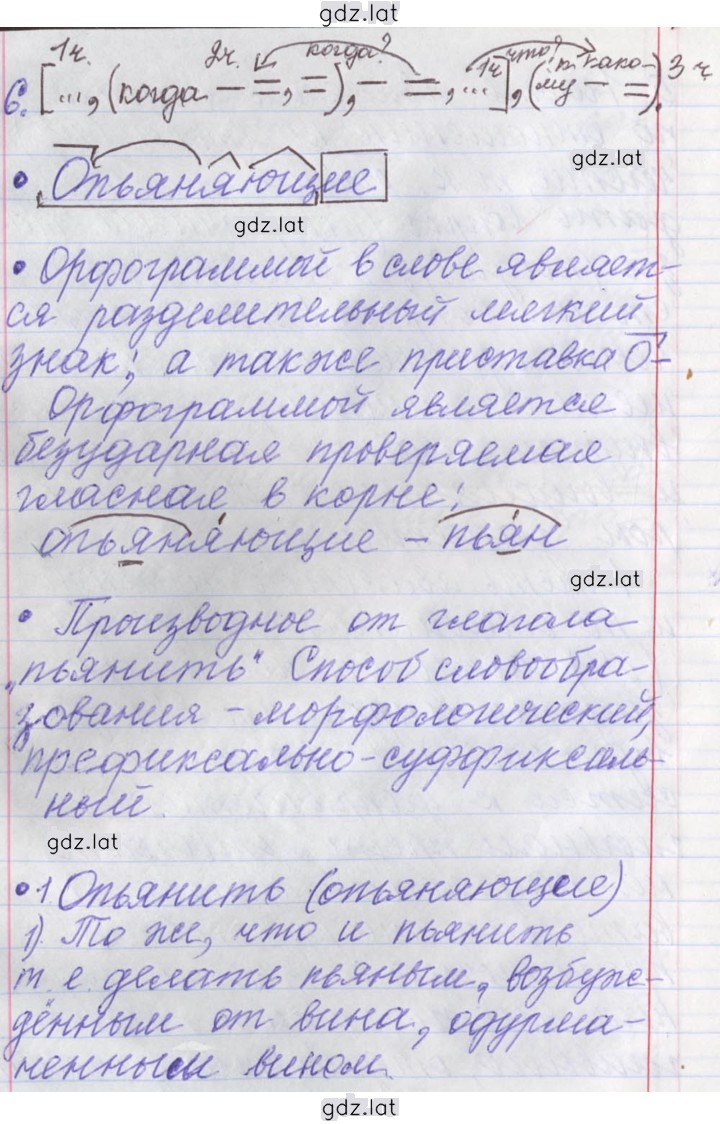 gdz.lat
1ч. 2ч. когда? что? 3ч
6. [..., (когда – =, =), – =, ... 1ч], (п. како-
му – =).
gdz.lat
• Опьяняющие
gdz.lat
• Орфограммой в слове являет-
ся разделительный мягкий
знак; а также приставка О-
Орфограммой является
безударная проверяемая
гласная в корне:
опьяняющие – пьян
gdz.lat
• Производное от глагола
„пьянить“ Способ словообра-
зования – морфологический,
префиксально-суффиксаль-
ный.
gdz.lat
• 1 Опьянить (опьяняющие)
1). То же, что и пьянить
т.е. делать пьяным, возбуж-
дённым от вина, одурма-
ненным вином.
gdz.lat